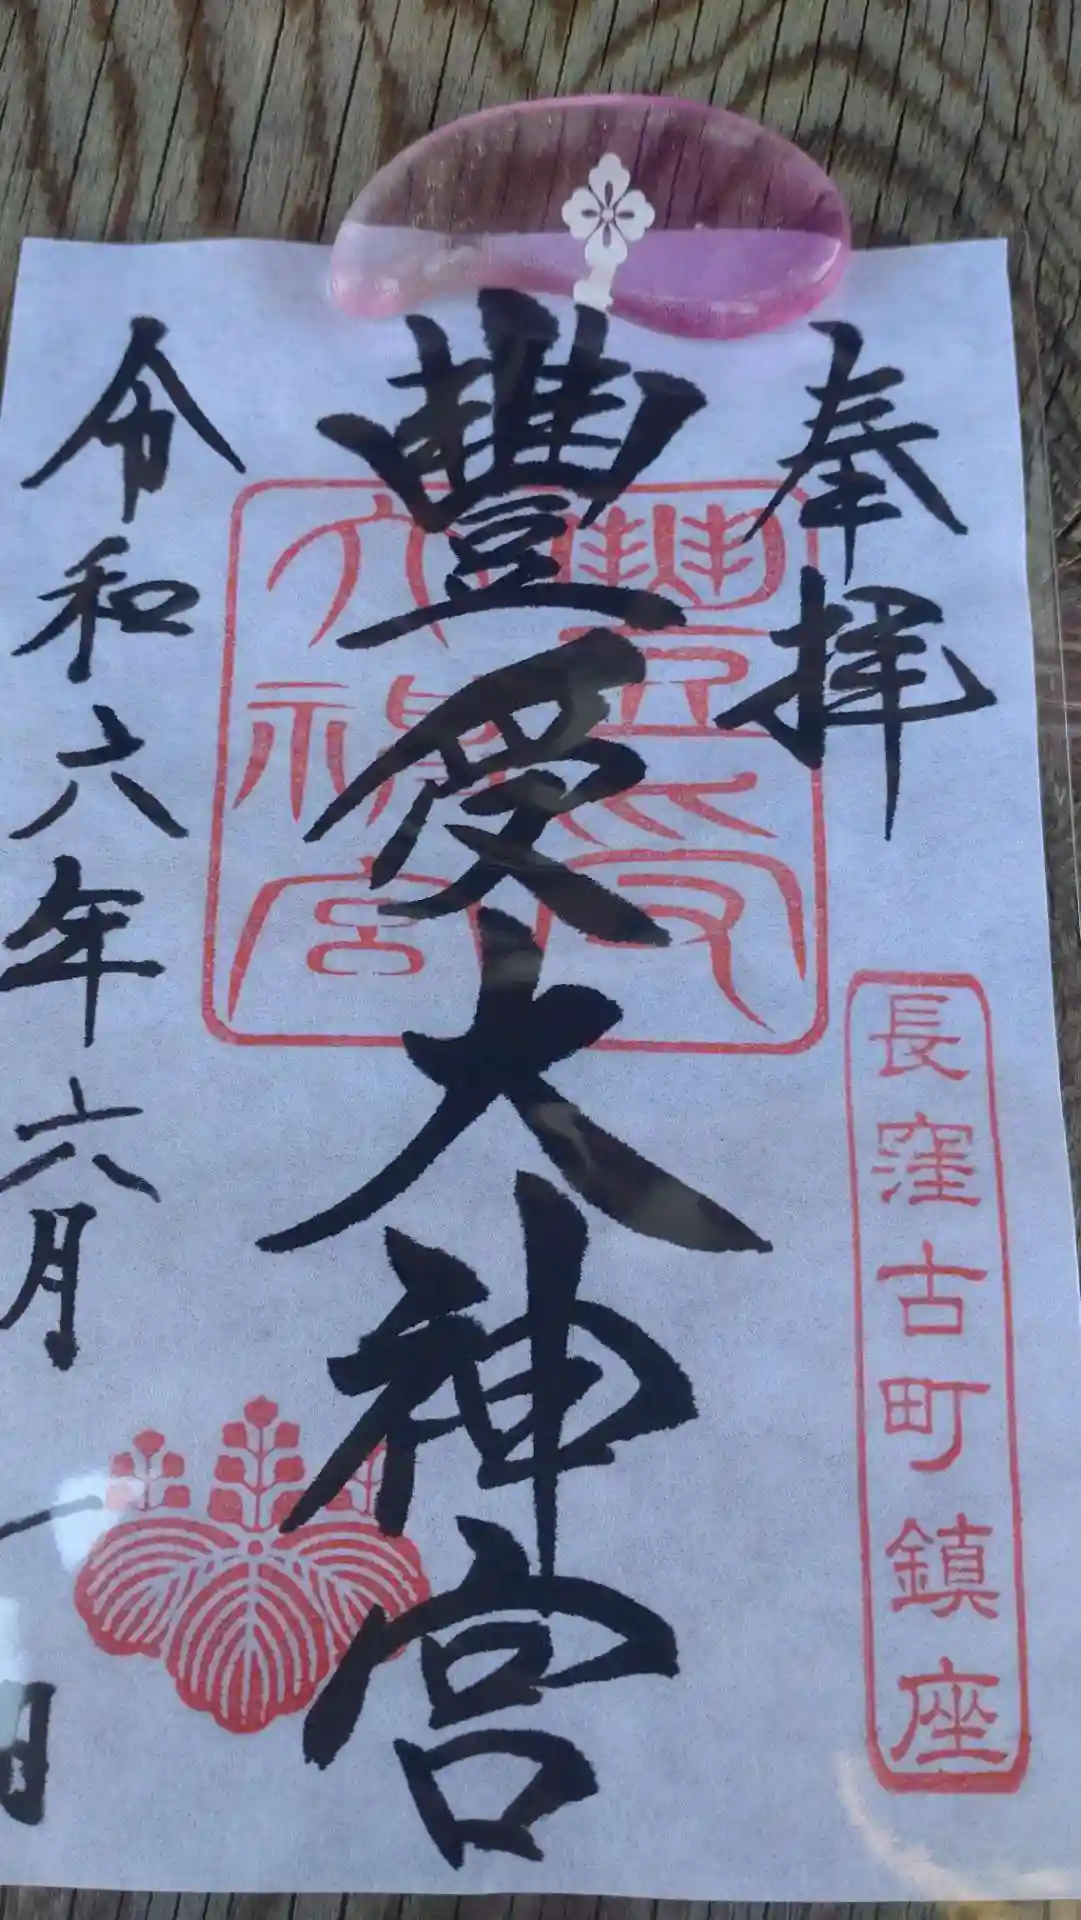 奉拝
長窪古町鎮座
豐受大神宮
豐受
大神宮
令和六年六月一日